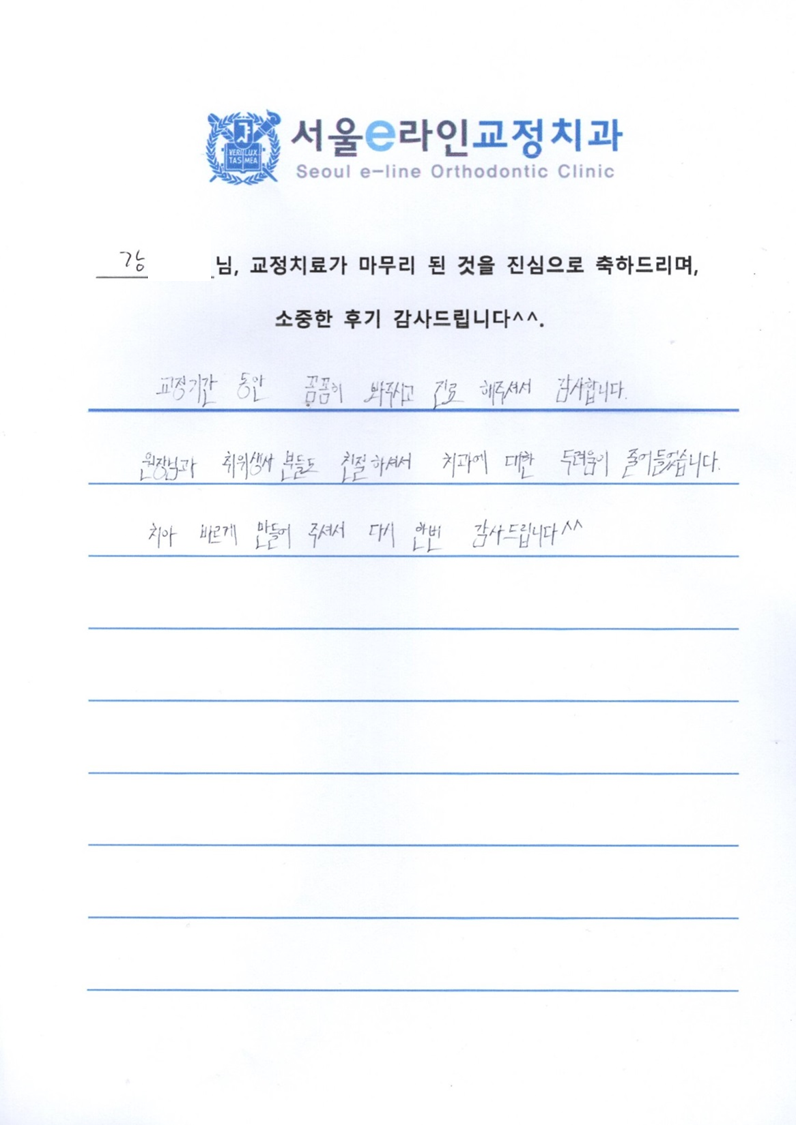 서울e라인교정치과
Seoul e-line Orthodontic Clinic
VERI LUX
TAS MEA
강 님, 교정치료가 마무리 된 것을 진심으로 축하드리며,
소중한 후기 감사드립니다^^.
교정기간 동안 꼼꼼히 봐주시고 진료 해주셔서 감사합니다.
원장님과 취위생사 분들도 친절하셔서 치과에 대한 두려움이 줄어들었습니다.
치아 바르게 만들어 주셔서 다시 한번 감사드립니다^^